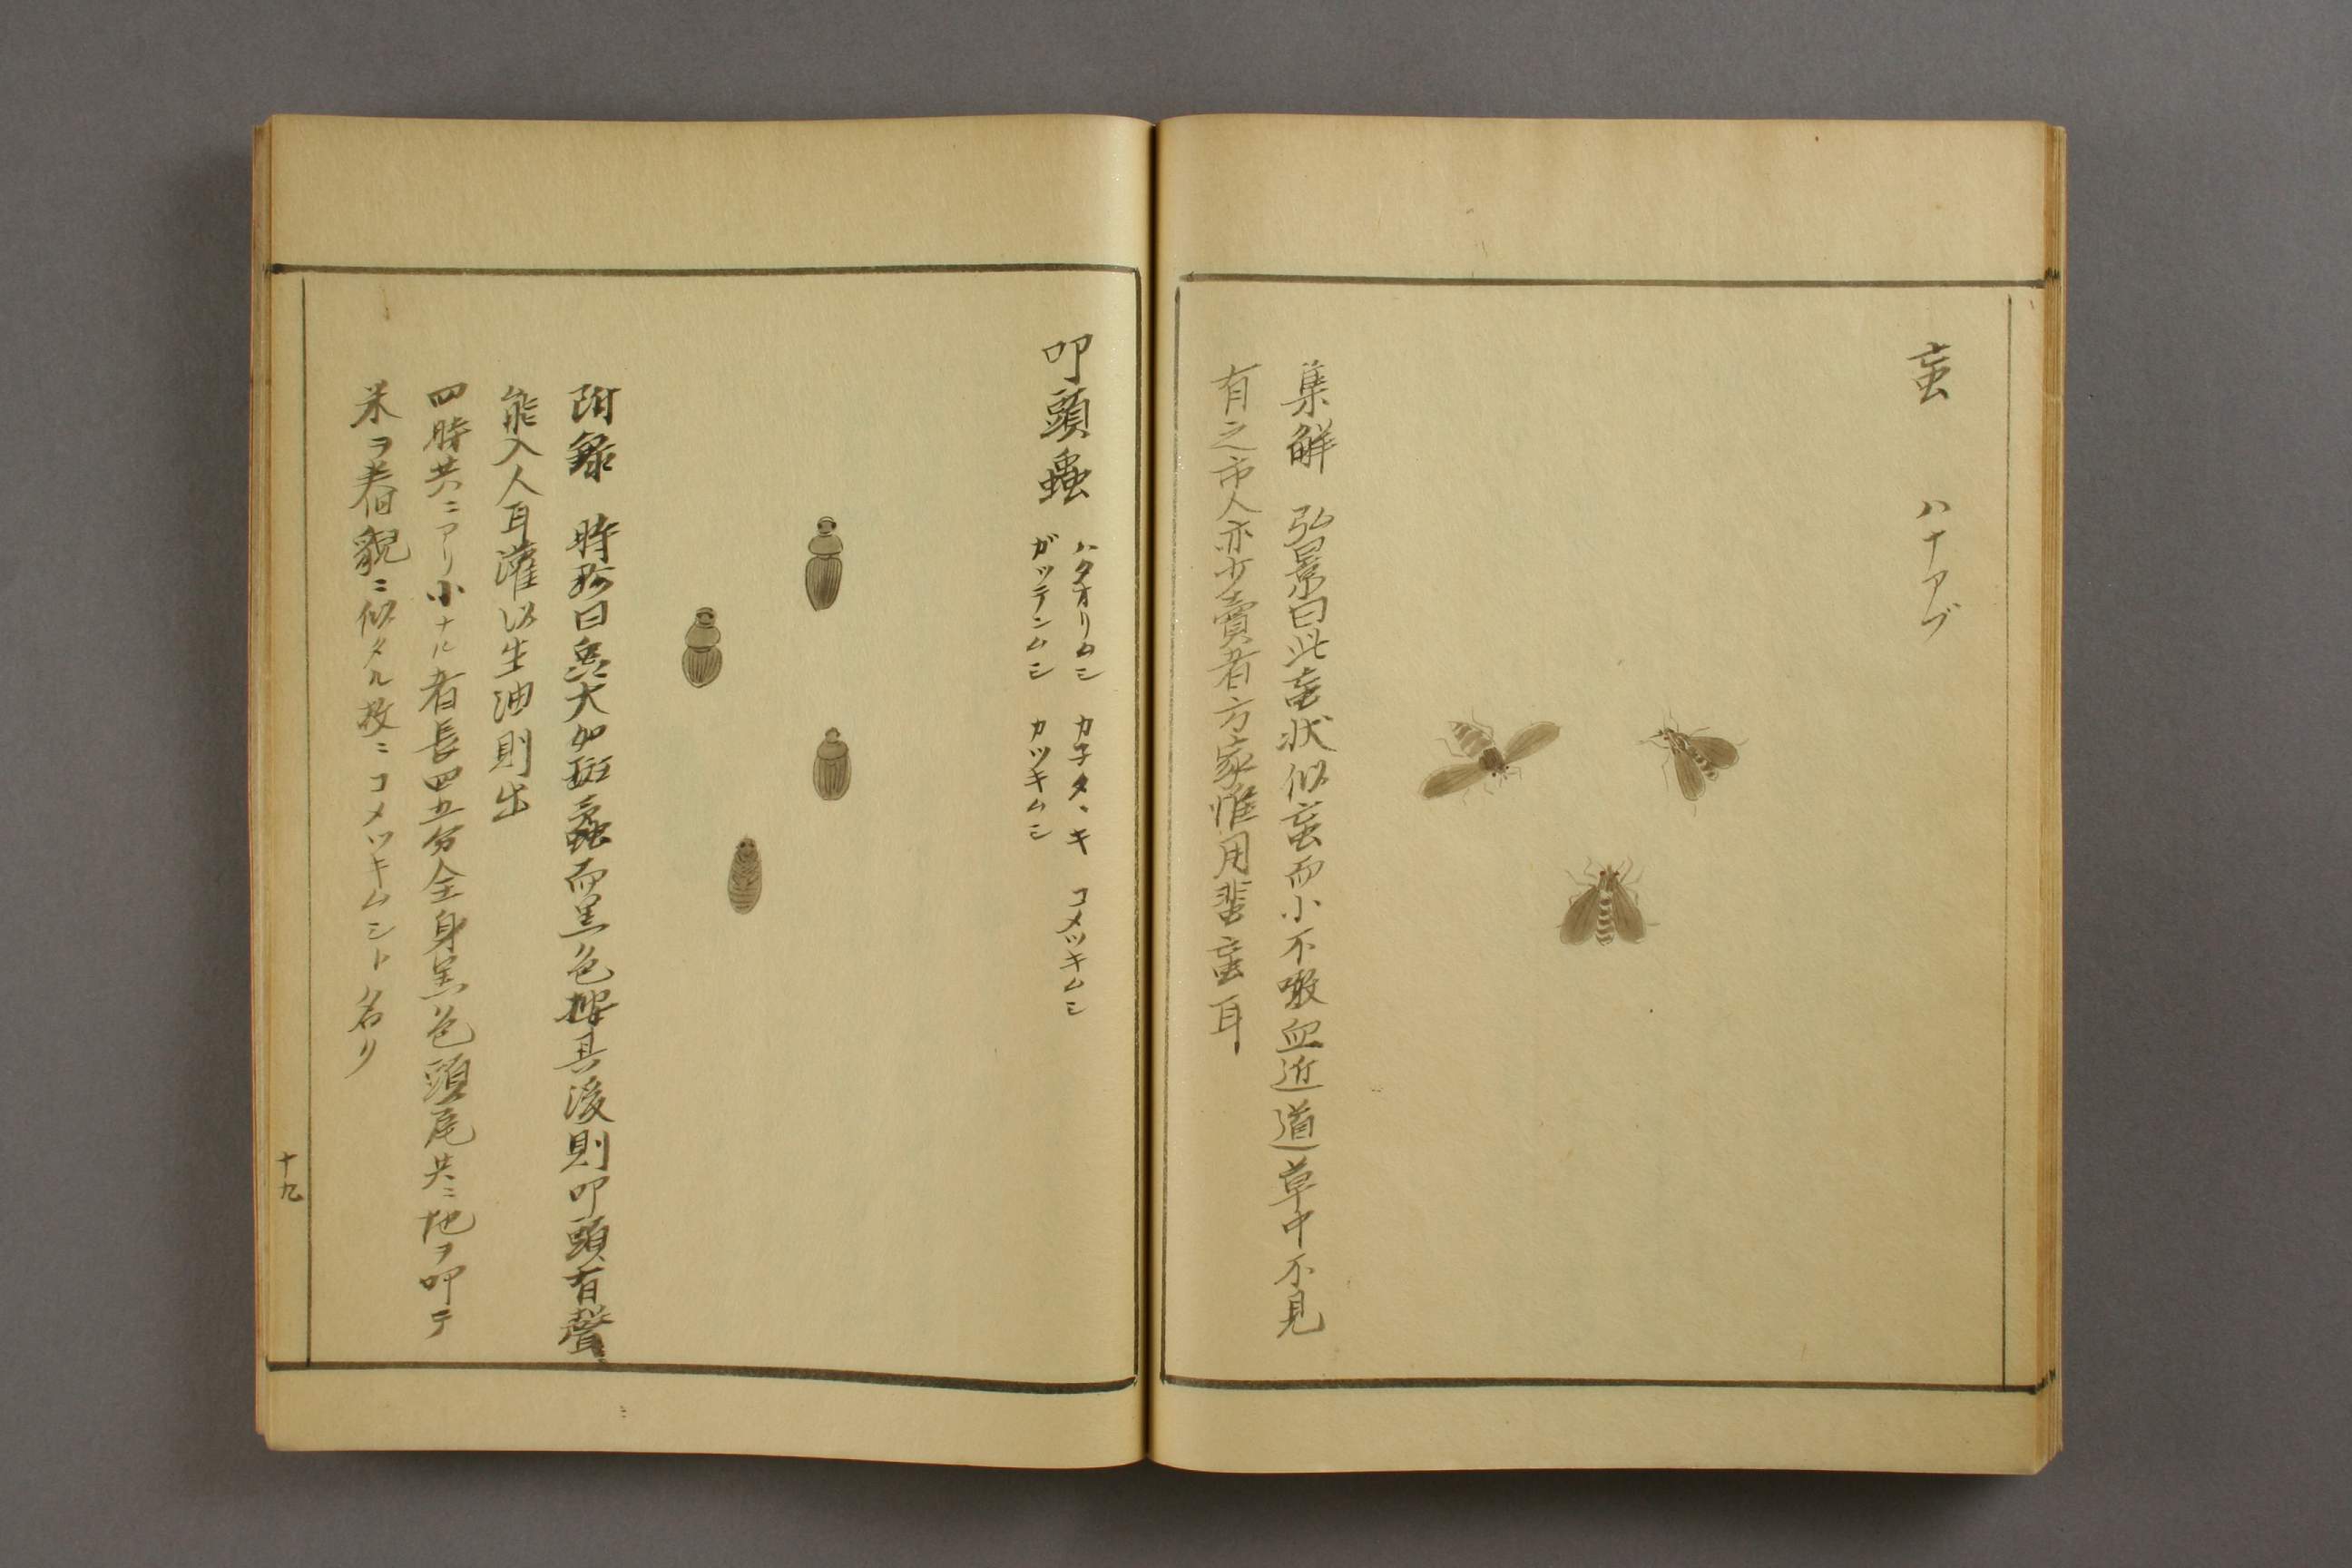 䖟 ハナアブ
集解 弘景曰此䖟状似䖟而小不噉血近道草中不見
有之市人亦少賣者方家惟用蜚䖟耳
叩頭蟲
ハタオリムシ カ子タヽキ コメツキムシ
ガツテンムシ カツキムシ
附錄 時珍曰蟲大如斑蝥而黒色按其後則叩頭有聲
能入人耳灌以生油則出
四時共ニアリ小ナル者長四五分全身黒色頭尾共ニ地ヲ叩テ
米ヲ舂貌ニ似タル故ニコメツキムシト名リ
十九